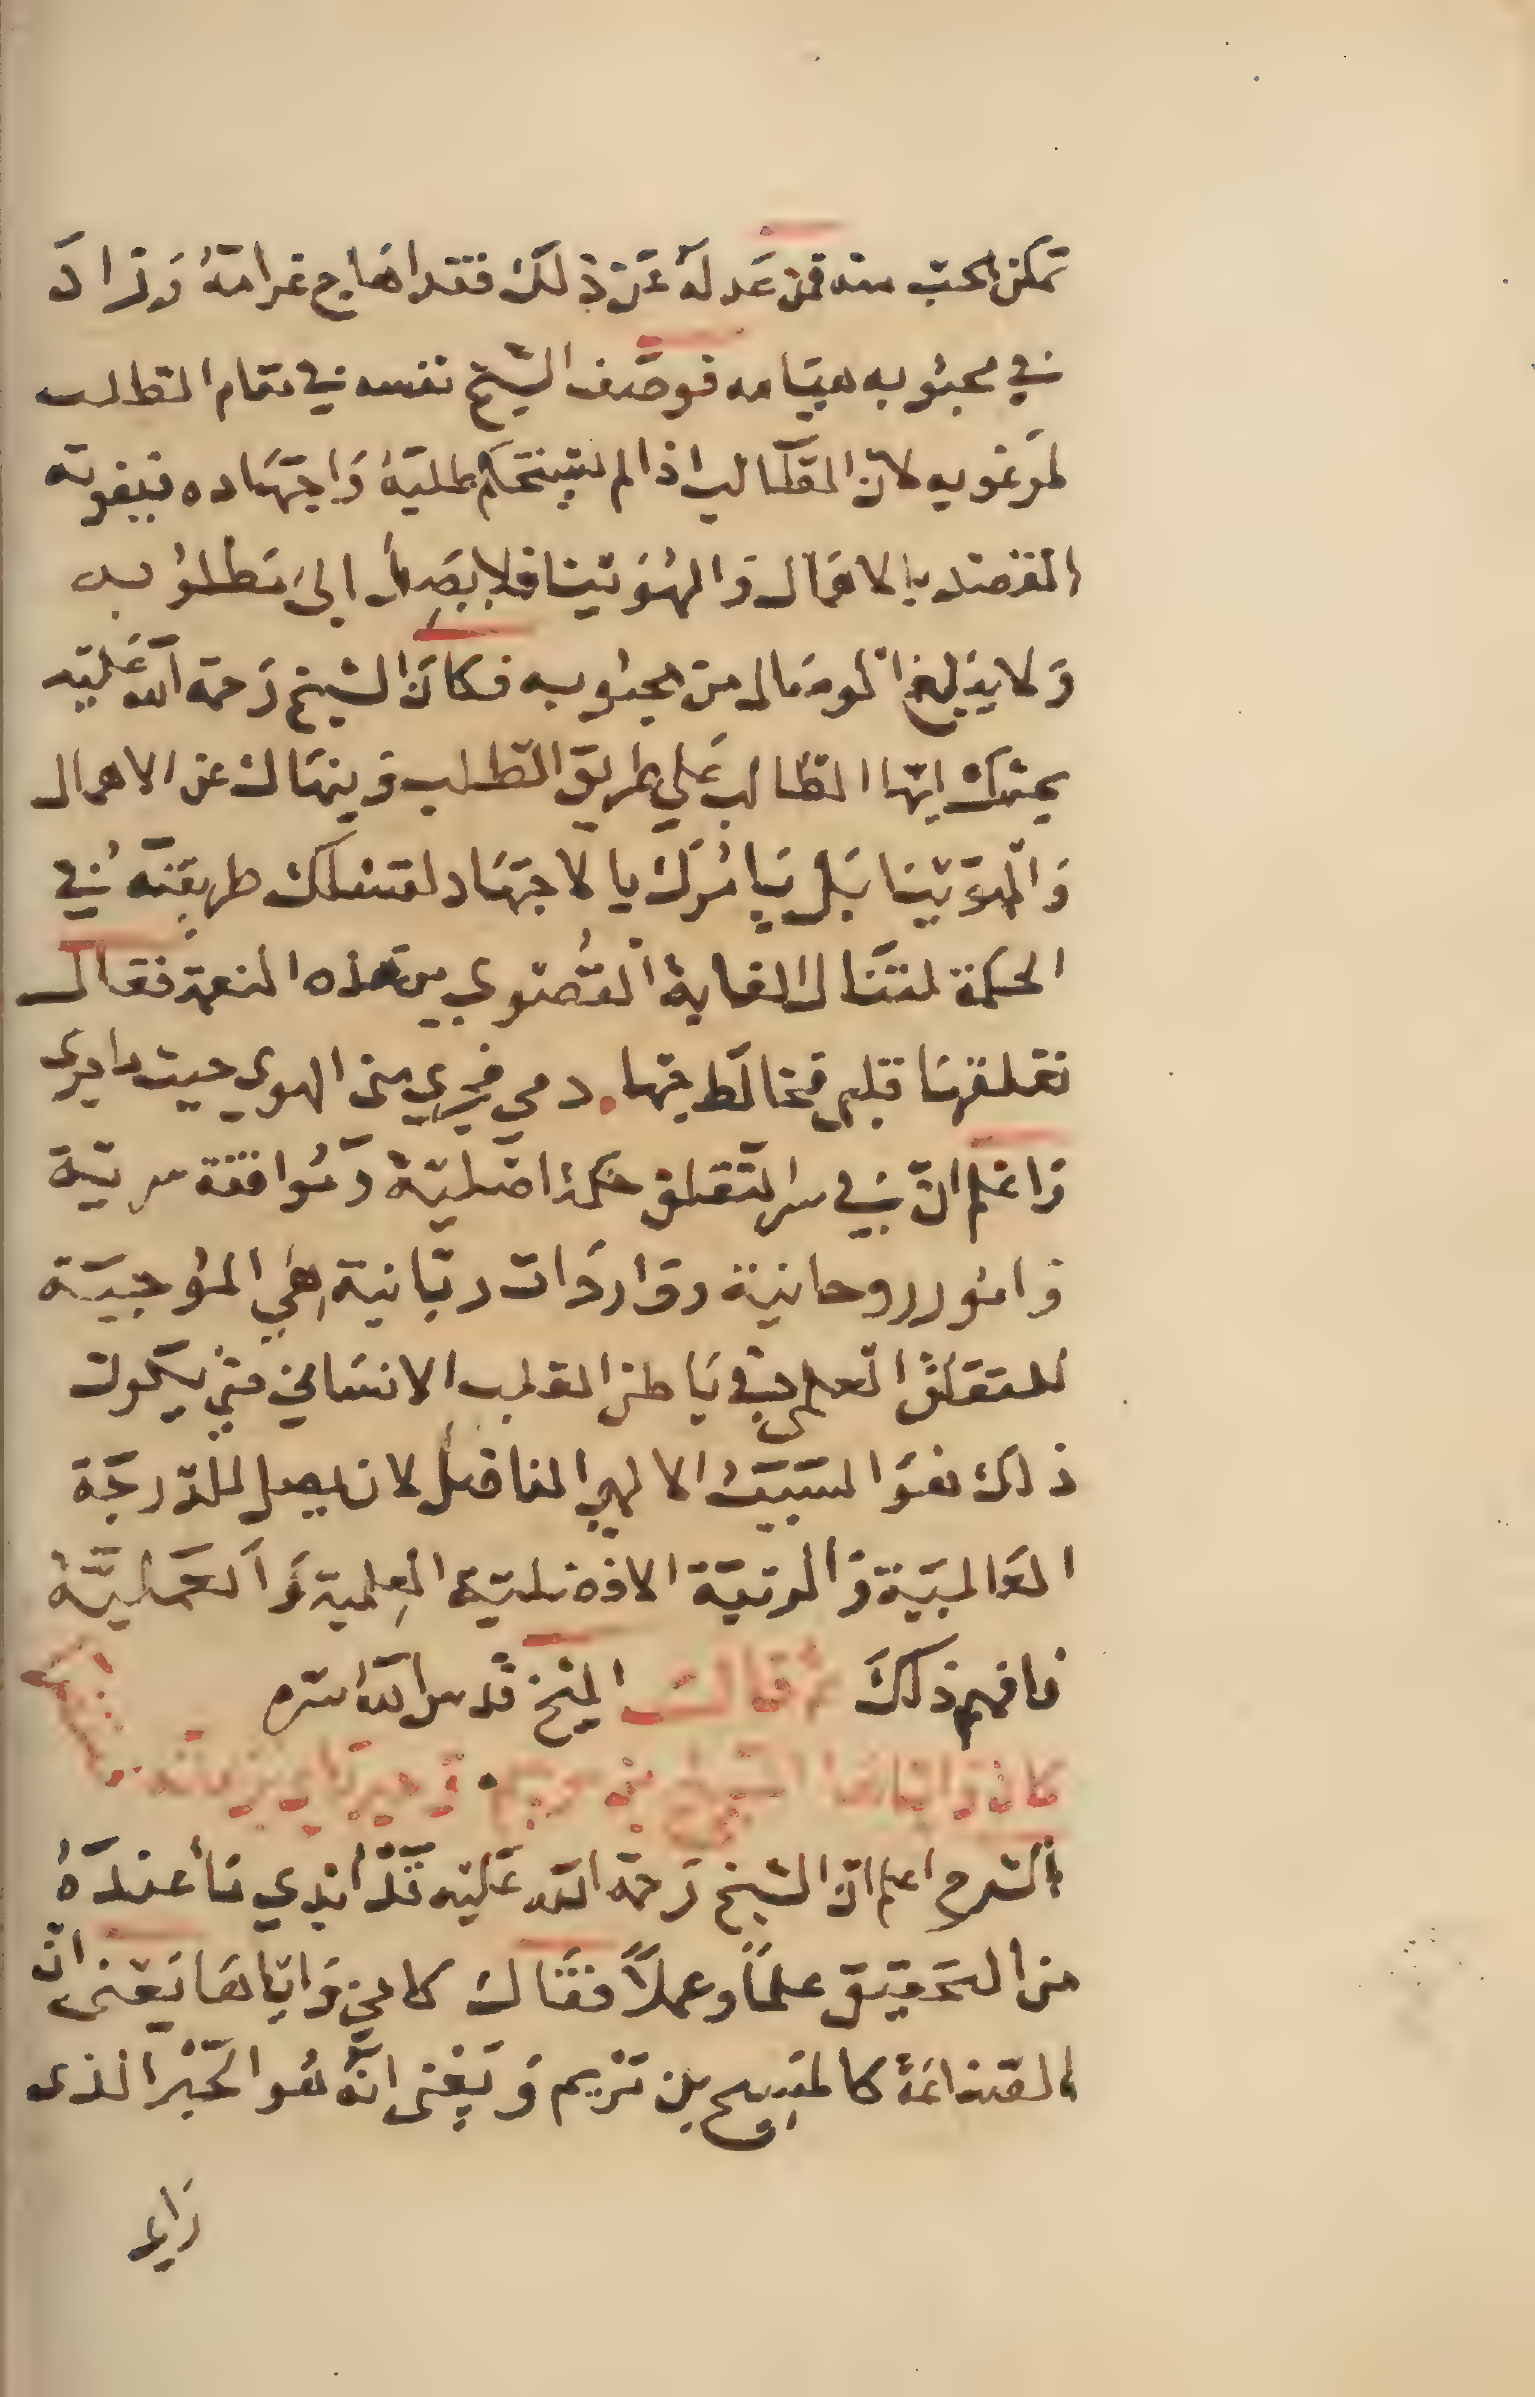 تمكن الحب منه فمن عَدله عَن ذلكَ فقد اهَاج غرامَهُ وَزادَ
في محبُوبه هيَامه فوصَف الشيخ نفسه في مقام الطالب
لمرغوبه لانّ الطَالب اذا لم يستحكم طلبَهُ وَاجتهَاده فيفوته
المقصد بالاهمال وَالهُوَينا فلا يصَل الى مَطلُوبه
وَلا يَبلغ الوصَال من محبُوبه فكانَ الشيخ رَحمة الله عَليه
يحثك ايّها الطَالب عَلي طريق الطلب وَينهَاك عن الاهمال
وَالهوَينَا بَل يَامُركَ بالاجتهَاد لتسلك طريقتهُ في
الحكمة لتنَال الغاية القُصْوي من هَذه النعمة فقال
تعلقهَا قلبي فخالَط حبها . دمي فجري من الهوى حيث ما جرى
وَاعلم انّ في سر التَعلق حكمة اصَليّة وَمُوافقة سريّة
وَامُور روحانية ووَاردَات ربّانية هي المُوجبَة
للتعَلق العلمي في بَاطن القلب الانسَاني فمتي يَكون
ذلك هوَ السَبَبُ الالهي الفاضل لان يصل للدّرجَة
العَالية وَالمرتبَة الافضليّة العِلمية وَالعَمَليَّة
فافهم ذلكَ ثم قالَ الشيخ قدس الله سره
كاني وَاياها المسيح بن مريم .
الشرح اعلم انّ الشيخ رَحمة الله عَليه قَدْ ابْدي مَا عندَهُ
من التحَقيق علمًا وعملًا فقَال كاني وَاياهَا يَعْني انّ
الصّناعَة كالمَسِيح بن مَرْيم وَيَعْني انَّهُ هُوَ الحَبْر الذى
رَاي